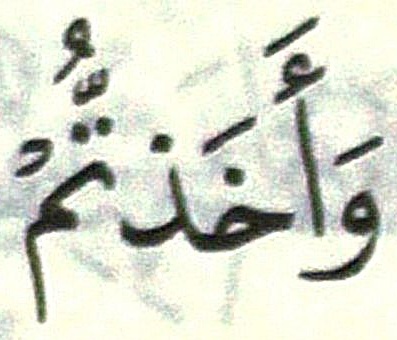 وَأَخَذتُّمْ